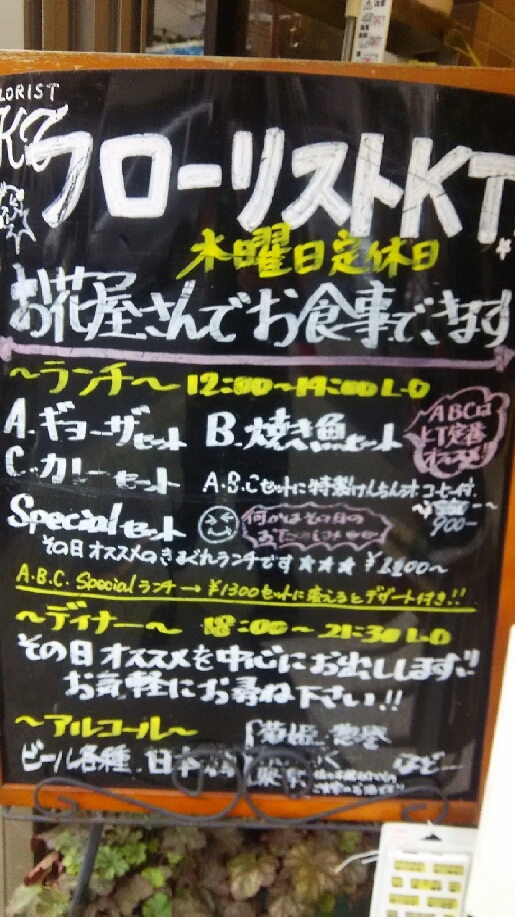 LORIST
KT
フローリストKT
木曜日定休日
お花屋さんでお食事できます
～ランチ～ 12:00～14:00 L・O
A.ギョーザセット B.焼き魚セット
ABCは
KT定番
オススメ!!
C.カレーセット A.B.Cセットに特製けんちん汁.コーヒー付.
900～
Specialセット 何かはその日の
その日オススメのきまぐれランチです★★★ ¥1200～
A.B.C. Special ランチ→¥1300セットに変えるとデザート付き!!
～ディナー～ 18:00～21:30 L・O
その日オススメを中心にお出しします!!
お気軽にお尋ね下さい!!
～アルコール～
ビール各種. 日本酒
など…